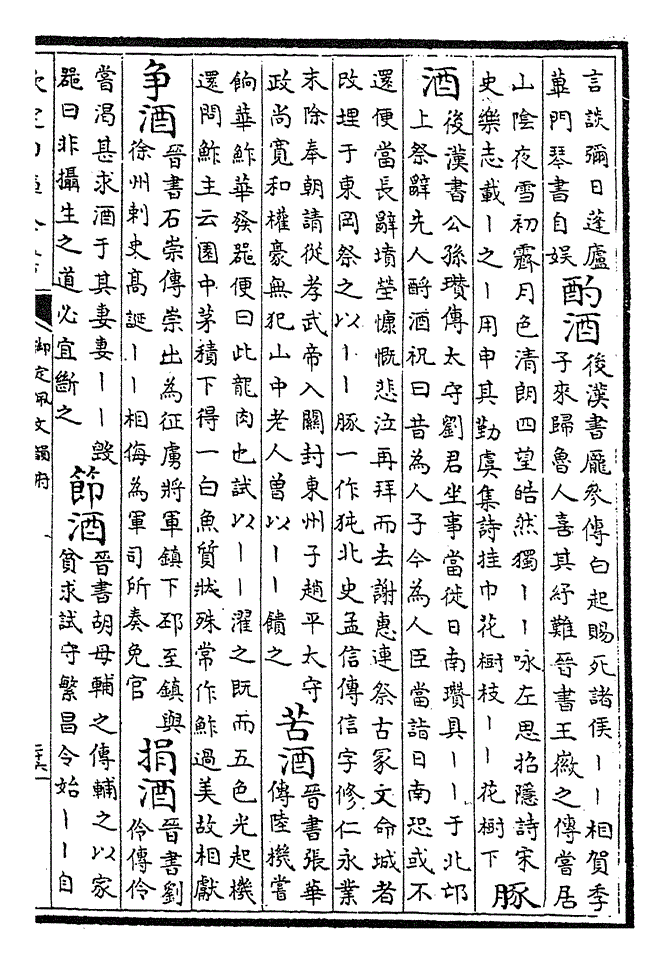 言談彌日蓬廬
蓽門琴書自娛
酌酒
後漢書龐參傳白起賜死諸侯丨丨相賀季
子來歸魯人喜其紓難晉書王徽之傳嘗居
山陰夜雪初霽月色清朗四望皓然獨丨丨咏左思招隱詩宋
史樂志載丨之丨用申其勤虞集詩挂巾花樹枝丨丨花樹下
豚
酒
後漢書公孫瓚傳太守劉君坐事當徙日南瓚具丨丨于北邙
上祭辭先人酹酒祝曰昔為人子今為人臣當詣日南恐或不
還便當長辭墳塋慷慨悲泣再拜而去謝惠連祭古冢文命城者
改埋于東岡祭之以丨丨豚一作㹠北史孟信傳信字修仁永業
末除奉朝請從孝武帝入關封東州子趙平太守
政尚寬和權豪無犯山中老人曾以丨丨饋之
苦酒
晉書張華
傳陸機嘗
餉華鮓華發器便曰此龍肉也試以丨丨濯之既而五色光起機
還問鮓主云園中茅積下得一白魚質狀殊常作鮓過美故相獻
爭酒
晉書石崇傳崇出為征虜將軍鎮下邳至鎮與
徐州刺史高誕丨丨相侮為軍司所奏免官
捐酒
晉書劉
伶傳伶
嘗渴甚求酒于其妻妻丨丨毀
器曰非攝生之道必宜斷之
節酒
晉書胡母輔之傳輔之以家
貧求試守繁昌令始丨丨自
御定佩文韻府